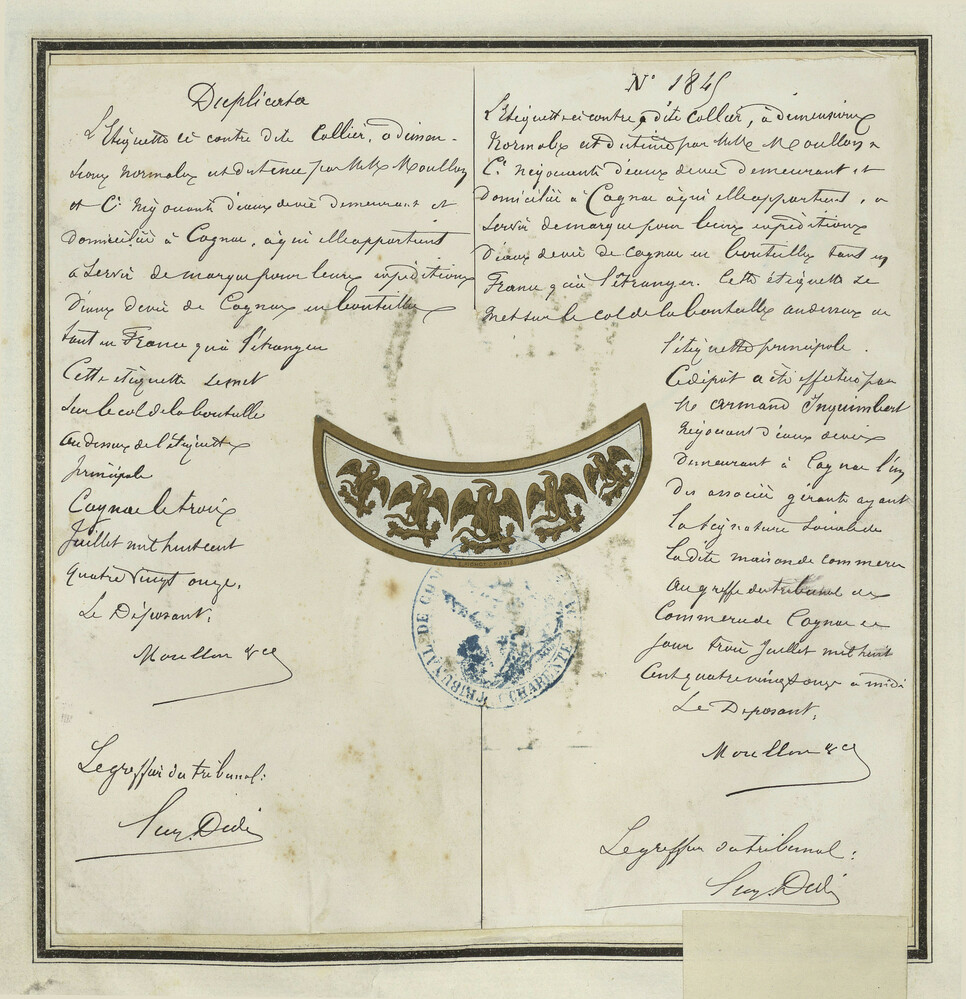 Duplicata
L'Etiquette ci contre dite Collier, à dimen-
sions normales est destinée par MM Moullon
et Cie Négociants d'eaux devie demeurant et
domiciliés à Cognac, à qui elle appartient
a servir de marque pour leurs expéditions
d'eaux devie de Cognac en bouteilles
tant en France qu'à l'étranger
Cette étiquette se met
sur le col de la bouteille
au dessus de l'étiquette
principale
Cognac le trois
Juillet mil huit cent
quatre vingt onze.
Le Déposant:
Moullon & Cie
Le greffier du tribunal:
N° 1845
L'Etiquette ci contre, dite Collier, à dimensions
normales est destinée par MM Moullon &
Cie Négociants d'eaux devie demeurant et
domiciliés à Cognac à qui elle appartient, a
servir de marque pour leurs expéditions
d'eaux devie de Cognac en bouteilles tant en
France qu'à l'Etranger. Cette étiquette se
met sur le col de la bouteille au dessus de
l'étiquette principale.
Ce dépôt a été effectué par
Mr Armand Inquimbert
Négociant d'eaux devie
demeurant à Cognac l'un
des associés gérants ayant
la signature sociale de
la dite maison de commerce
au greffe du tribunal de
Commerce de Cognac ce
jour trois Juillet mil huit
cent quatre vingt onze à midi
Le Déposant,
Moullon & Cie
Le greffier du tribunal:
PARIS
TRIBUNAL DE COM
CHARENTE